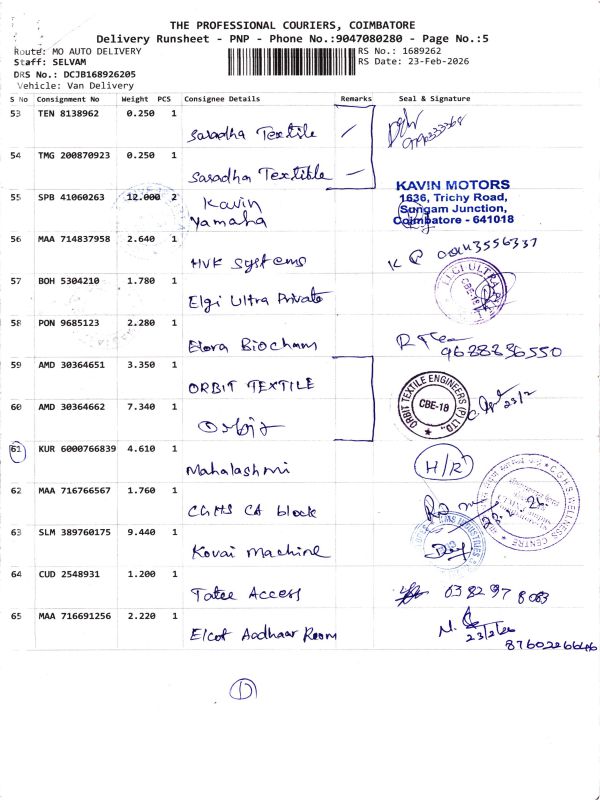 THE PROFESSIONAL COURIERS, COIMBATORE
Delivery Runsheet - PNP - Phone No.:9047080280 - Page No.:5
Route: MO AUTO DELIVERY
RS No.: 1689262
Staff: SELVAM
RS Date: 23-Feb-2026
DRS No.: DCJB168926205
Vehicle: Van Delivery
S No Consignment No Weight PCS Consignee Details Remarks Seal & Signature
53 TEN 8138962 0.250 1
Saradha Textile
54 TMG 200870923 0.250 1
Saradha Textible
55 SPB 41060263 12.000 2
Kavin
Yamaha
KAVIN MOTORS
1636, Trichy Road,
Sungam Junction,
Coimbatore - 641018
56 MAA 714837958 2.640 1
HVK Systems
57 BOH 5304210 1.780 1
Elgi Ultra Private
ELGI ULTRA
CBE-18
58 PON 9685123 2.280 1
Elora Biocham
9628886550
59 AMD 30364651 3.350 1
ORBIT TEXTILE
60 AMD 30364662 7.340 1
Orbit
ORBIT TEXTILE ENGINEERS (P) LTD.,
CBE-18
23/2
61 KUR 6000766839 4.610 1
Mahalashmi
H/R
62 MAA 716766567 1.760 1
CGHS CA block
C.G.H.S WELLNESS CENTRE
63 SLM 389760175 9.440 1
Kovai Machine
64 CUD 2548931 1.200 1
Tatee Access
6382978083
65 MAA 716691256 2.220 1
Elcot Aadhaar Room
8760226646
1